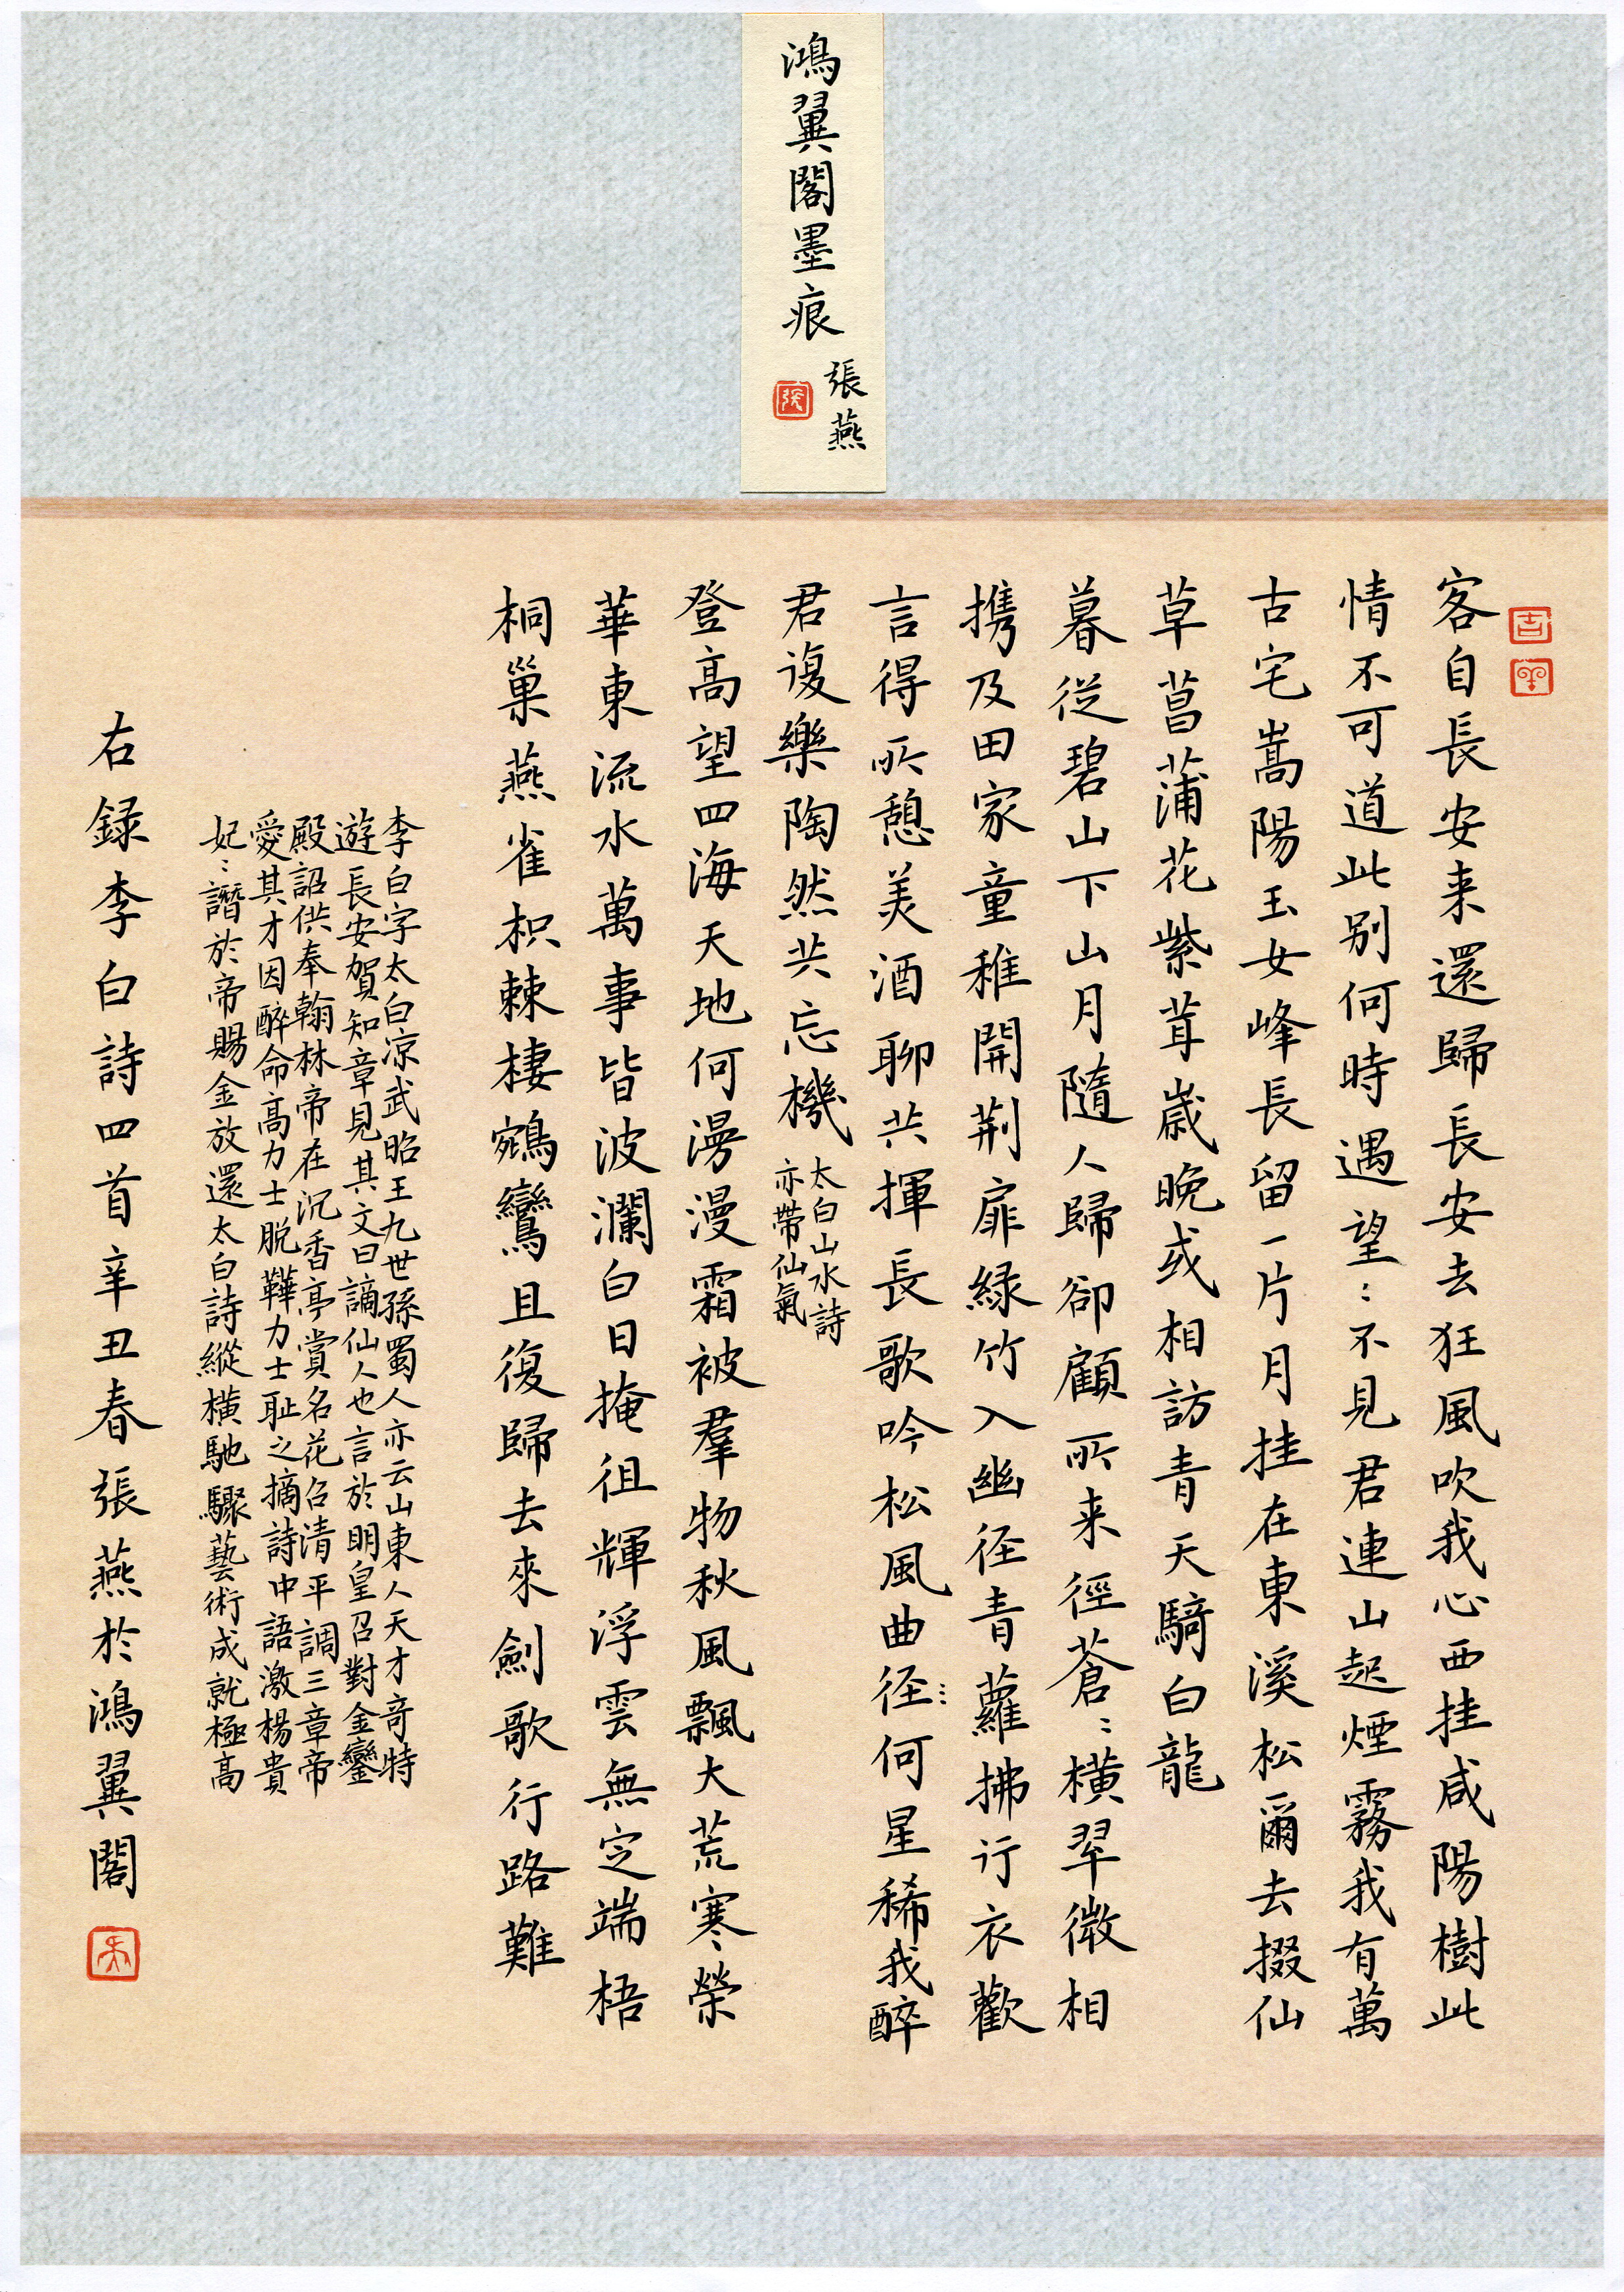 鴻翼閣墨痕
張燕
客自長安来還歸長安去狂風吹我心西挂咸陽樹此
情不可道此别何時遇望〻不見君連山起煙霧我有萬
古宅嵩陽玉女峰長留一片月挂在東溪松爾去掇仙
草菖蒲花紫茸歲晚或相訪青天騎白龍
暮從碧山下山月隨人歸卻顧所来徑蒼〻橫翠微相
携及田家童稚開荆扉緑竹入幽径青蘿拂行衣歡
言得所憩美酒聊共揮長歌吟松風曲径何星稀我醉
君復樂陶然共忘機
太白山水詩
亦帶仙氣
登高望四海天地何漫漫霜被羣物秋風飄大荒寒榮
華東流水萬事皆波瀾白日掩徂輝浮雲無定端梧
桐巢燕雀枳棘棲鵷鸞且復歸去來劍歌行路難
李白字太白凉武昭王九世孫蜀人亦云山東人天才竒特
遊長安賀知章見其文曰謫仙人也言於明皇召對金鑾
殿詔供奉翰林帝在沉香亭賞名花召清平調三章帝
愛其才因醉命高力士脱鞾力士耻之摘詩中語激楊貴
妃〻譖於帝賜金放還太白詩縱橫馳驟藝術成就極高
右録李白詩四首辛丑春張燕於鴻翼閣